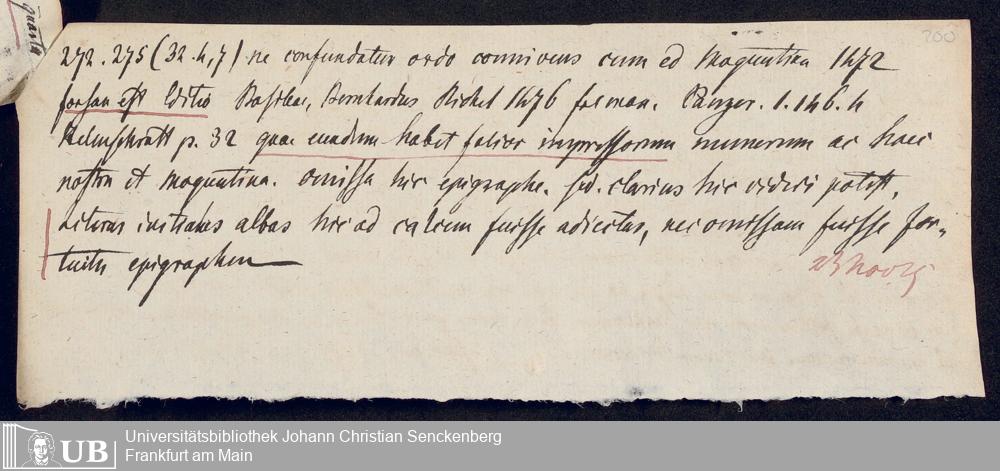 Quarta
200
272. 275 (32. 4, 7) ne confundatur ordo connivens cum ed Moguntina 1472
forsan est Editio Basileae, Bernhardus Richel 1476 formam. Panzer. 1. 146. 4
p. 32 quae eundem habet folior impressorum numerum ac haec
nostra et Moguntina. omissa hic epigraphe. sed. clarius hic videri potest,
Literas initiales albas hic ad calcem fuisse adiectas, nec omissam fuisse for„
tuito epigraphen
Universitätsbibliothek Johann Christian Senckenberg
Frankfurt am Main
UB